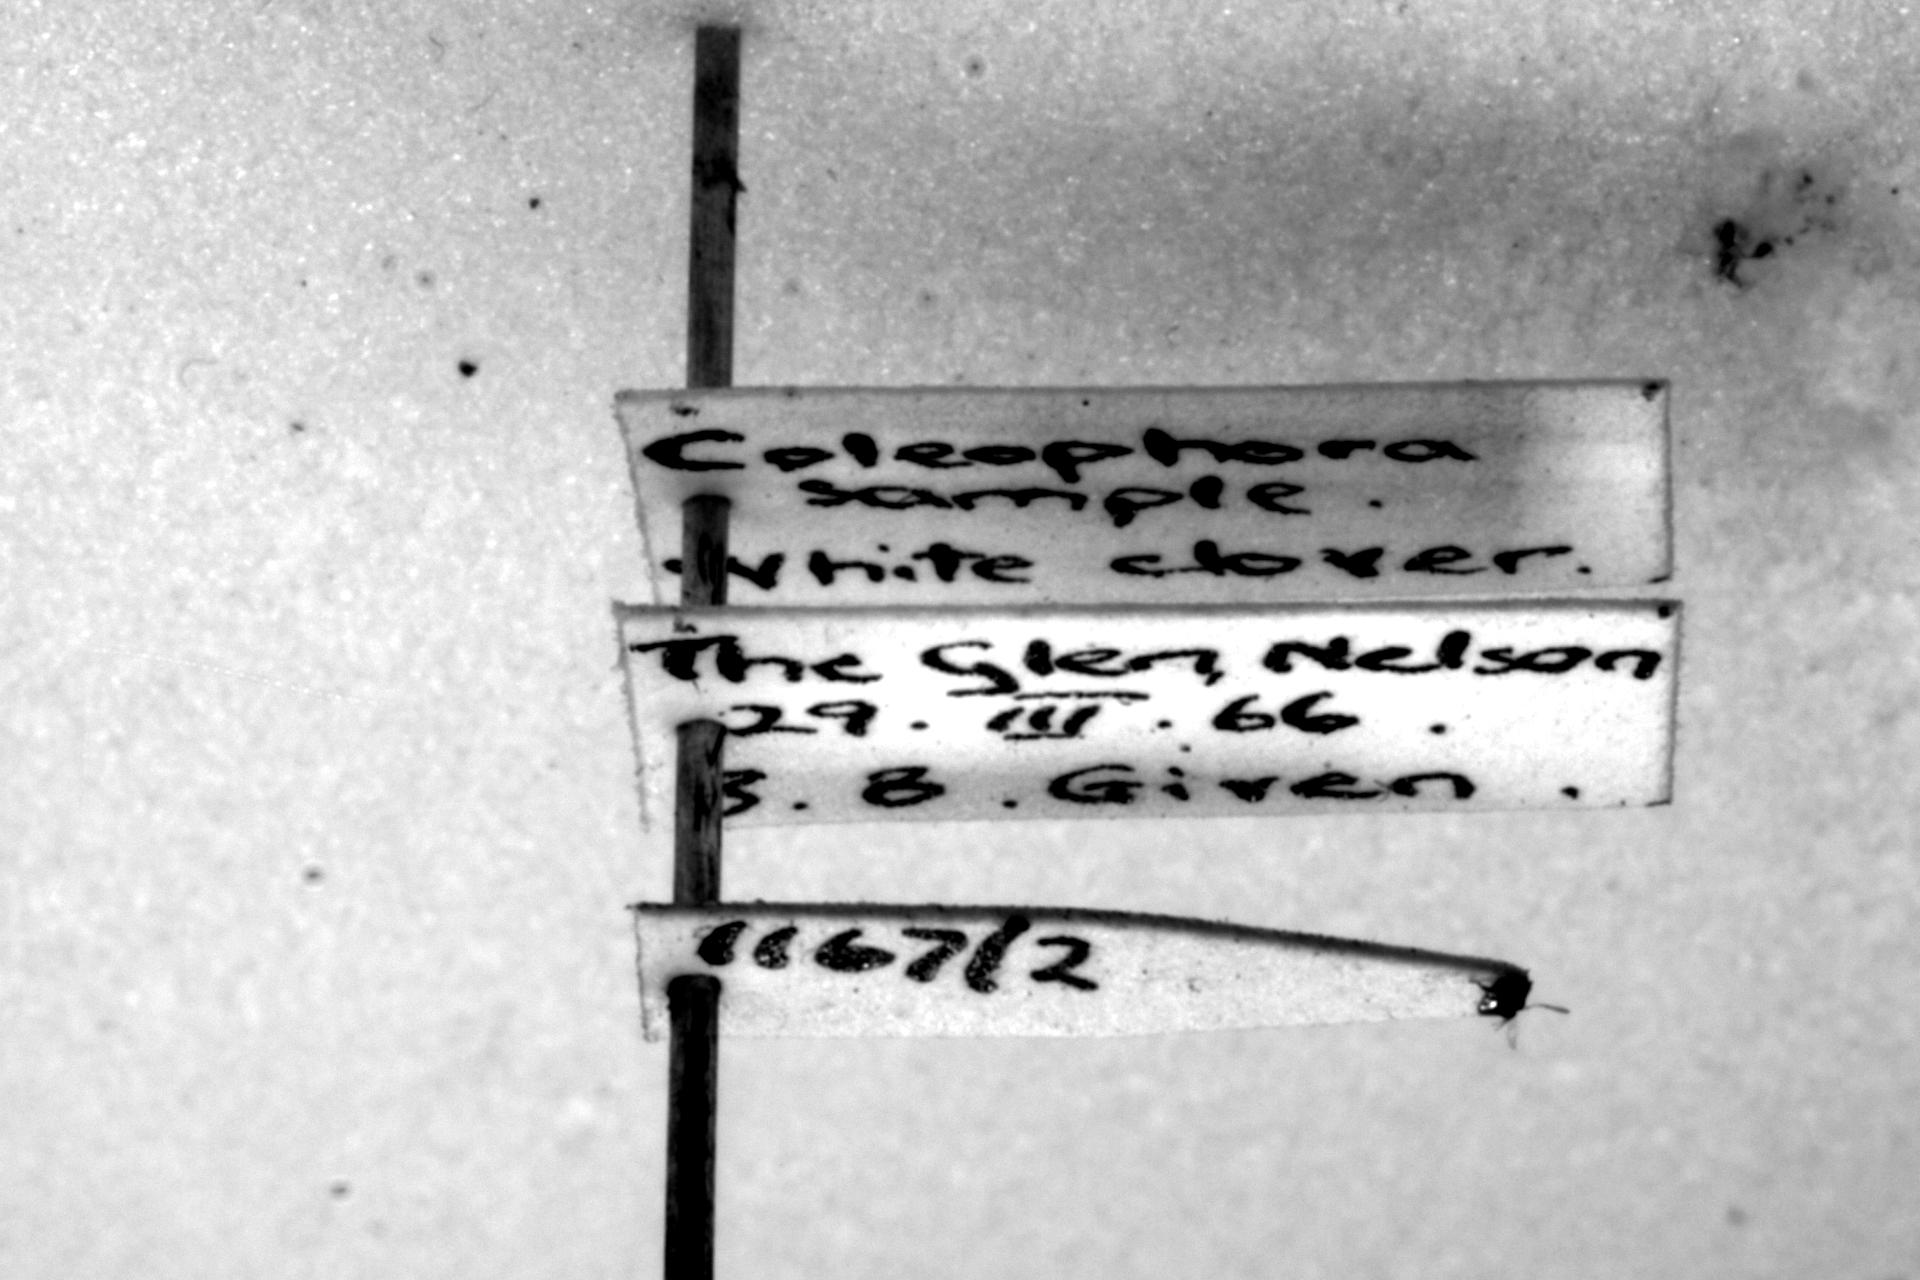 Coleophora
sample.
white clover.
The Glen, Nelson
29. III. 66.
B. B. Given.
1167/2